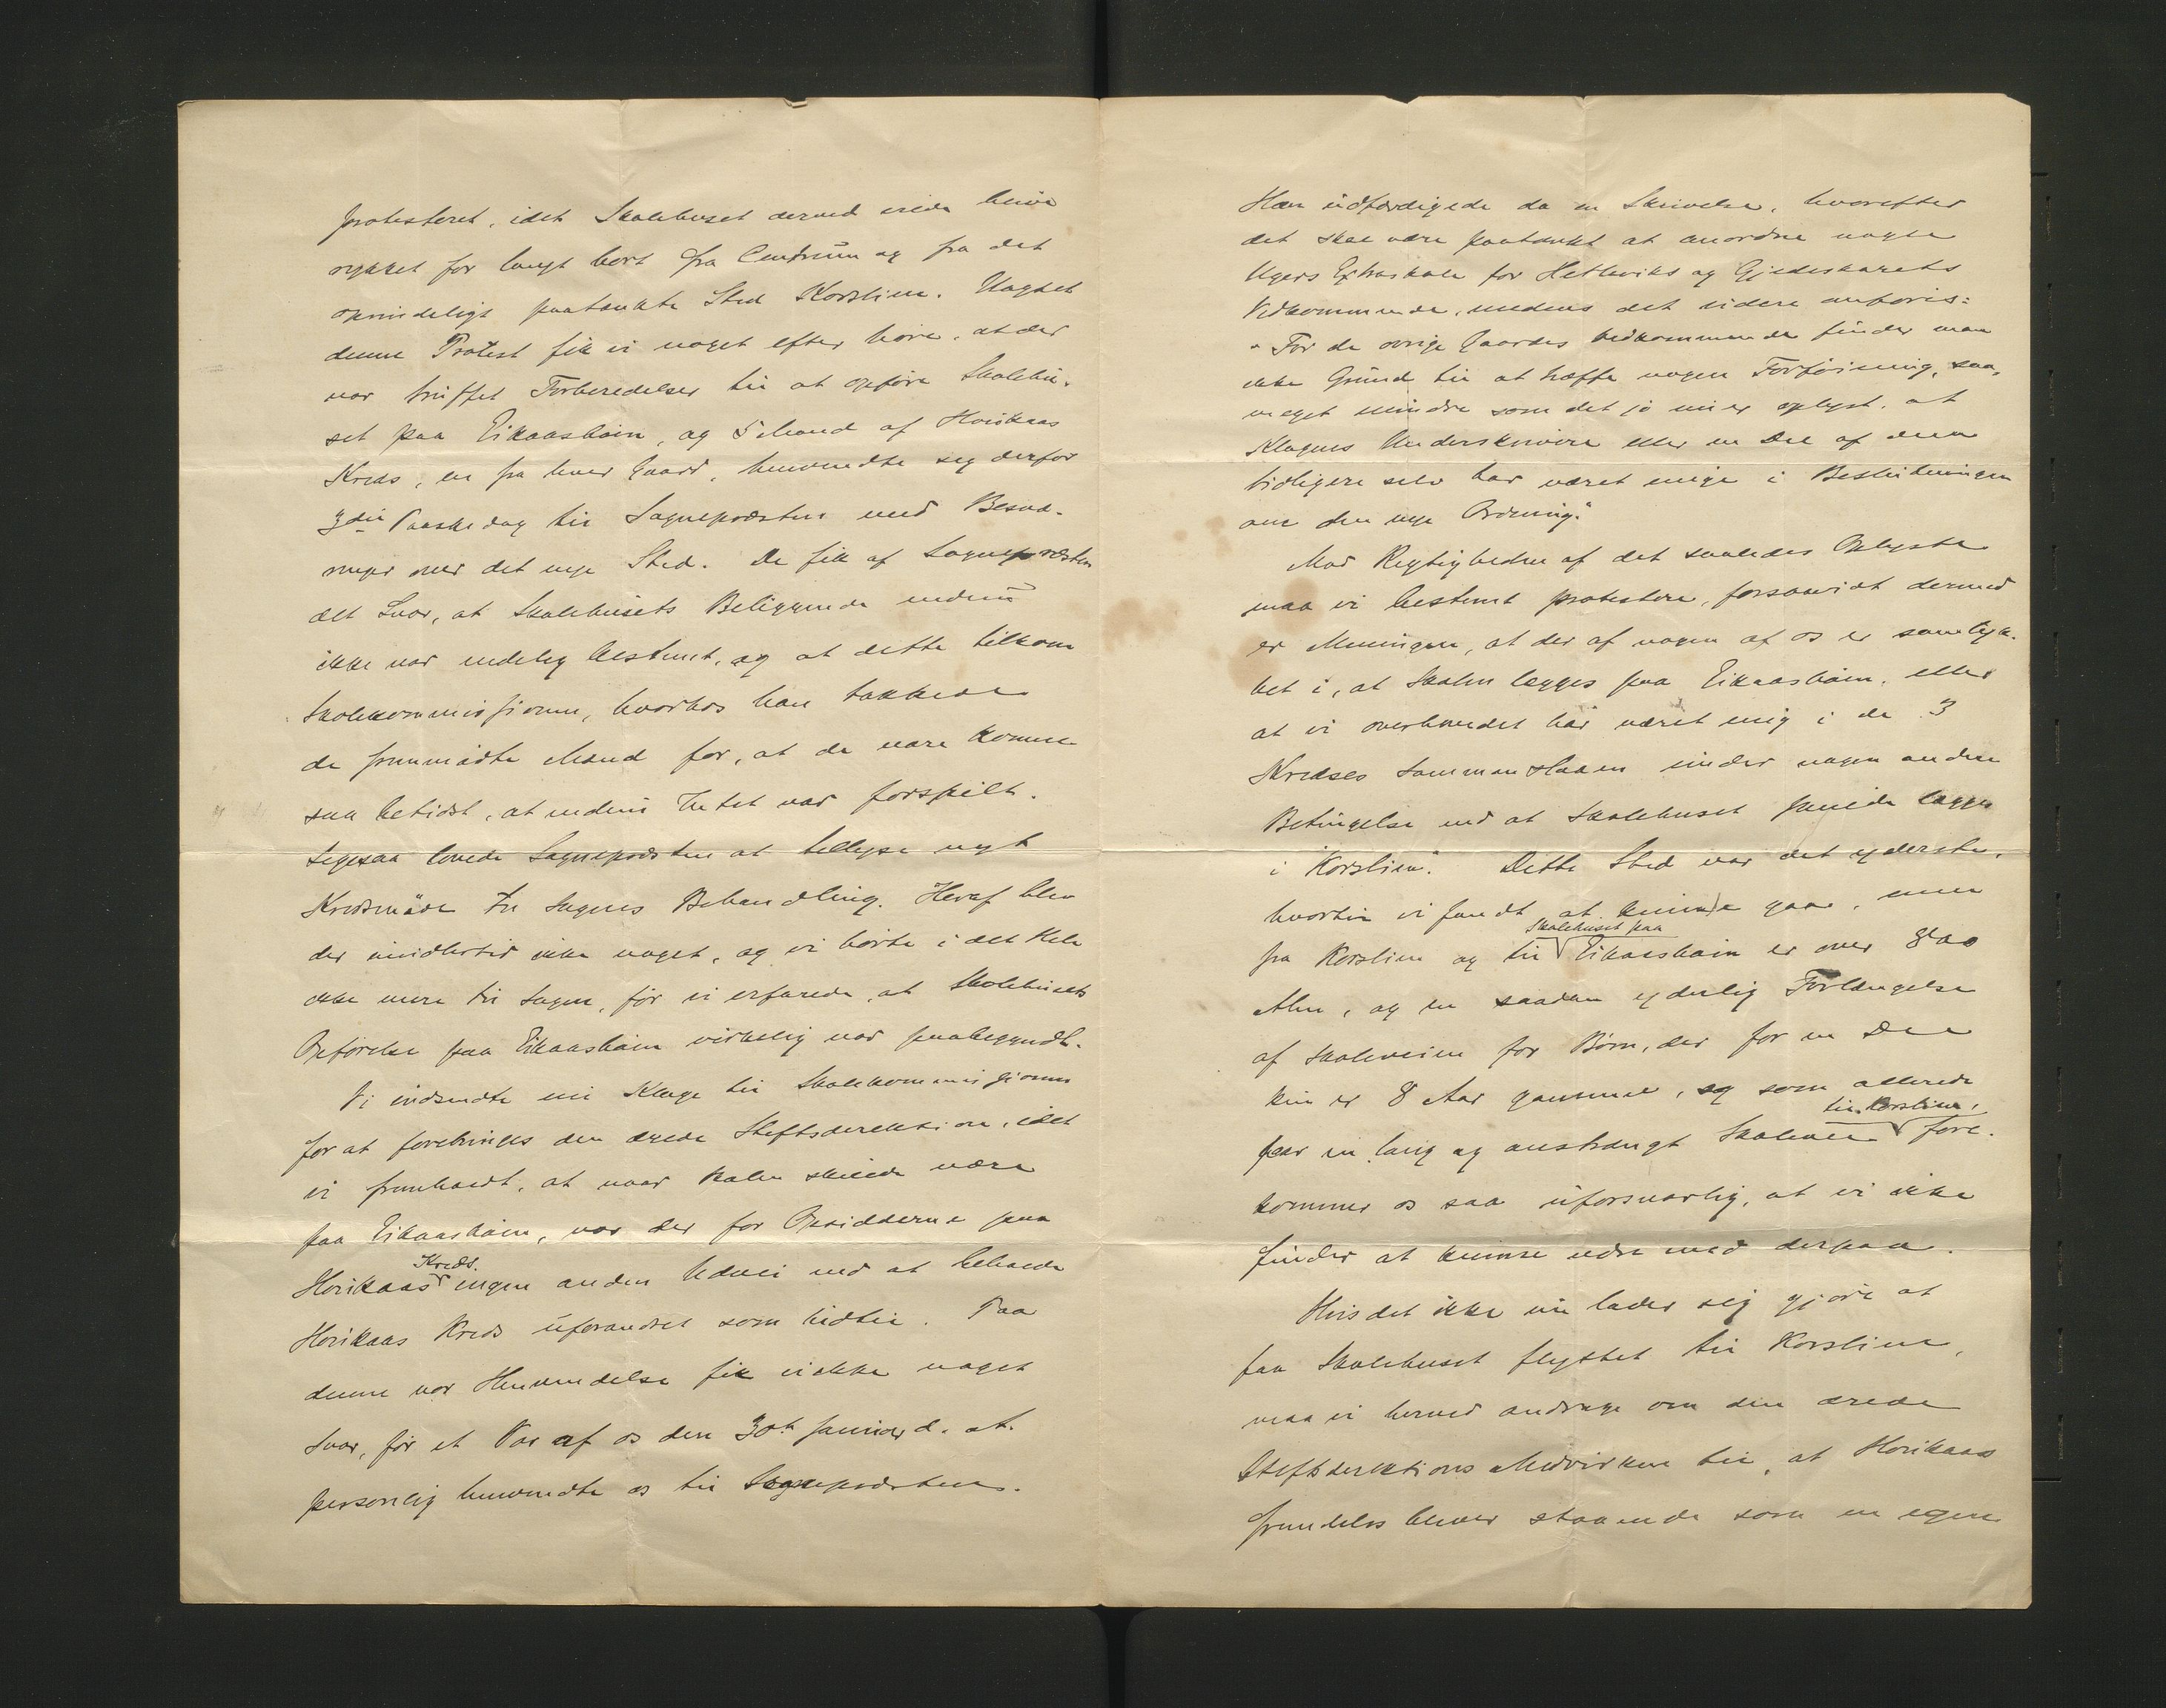 protesteret, idet Skolehuset derved vilde blive
rykket for langt bort fra Centrum og fra det
oprindeligt paatænkte Sted Korslien. Uagtet
denne Protest fik vi noget efter høre, at der
var truffet Forberedelser til at opføre Skolehu-
set paa Eikaashøien, og 5 Mænd af Horikaas
Kreds, en fra hver Gaard, henvendte sig derfor
3die Paaskedag til Sognepræsten med Besvæ-
ringer over det nye Sted. De fik af Sognepræsten
det Svar, at Skolehusets Beliggende endnu
ikke var endelig bestemt, og at dette tilkom
Skolekommissionen, hvorhos han takkede
de fremmødte Mænd for, at de vare komne
saa betids, at endnu Intet var forspildt.
Ligesaa lovede Sognepræsten at tillyse nyt
Kredsmøde til Sagens Behandling. Heraf blev
der imidlertid ikke noget, og vi hørte i det Hele
ikke mere til Sagen, før vi erfarede, at Skolehusets
Opførelse paa Eikaashøien virkelig var paabegyndt.
Vi indsendte en Klage til Skolekommissionen
for at forebringes den ærede Stiftsdirektion, idet
vi fremholdt, at naar Skolen skulde være
paa Eikaashøien, var der for Opsidderne paa
Kreds.
Horikaas ingen anden Udvei end at beholde
Horikaas Kreds uforandret som hidtil. Paa
denne vor Henvendelse fik vi ikke noget
Svar, før et Par af os den 30te Januar d. A.
personlig henvendte os til Sognepræsten.
Han udfærdigede da en Skrivelse, hvorefter
det skal være paatænkt at anordne nogle
Ugers Extraskole for Hetleviks og Gjedeskarets
Vedkommende, medens det videre anføres:
"For de øvrige Gaardes Vedkommende finder man
ikke Grund til at træffe nogen Forføining, saa
meget mindre som det jo nu er oplyst, at
Klagens Underskrivere eller en Del af dem
tidligere selv har været enige i Beslutningen
om den nye Ordning."
Mod Rigtigheden af det saaledes Oplyste
maa vi bestemt protestere, forsaavidt dermed
er Meningen, at der af nogen af os er samtyk-
ket i, at Skolen lægges paa Eikaashøien, eller
at vi overhovedet har været enig i de 3
Kredses Sammenslaaen under nogen anden
Betingelse end at Skolehuset skulde lægges
i "Korslien". Dette Sted var det yderste,
hvortil vi fandt at kunne gaa, men
Skolehuset paa
fra Korslien og til Eikaashøien er over 800
Alen, og en saadan yderlig Forlængelse
af Skoleveien for Børn, der for en Del
kun er 8 Aar gammel, og som allerede
til Korslien,
har en lang og anstrængt Skolevei fore-
kommer os saa uforsvarlig, at vi ikke
finder at kunne være med derpaa.
Hvis det ikke nu lader sig gjøre at
faa Skolehuset flyttet til Korslien,
maa vi herved andrage om den ærede
Stiftsdirektions Medvirken til, at Horikaas
fremdeles bliver staaende som en egen